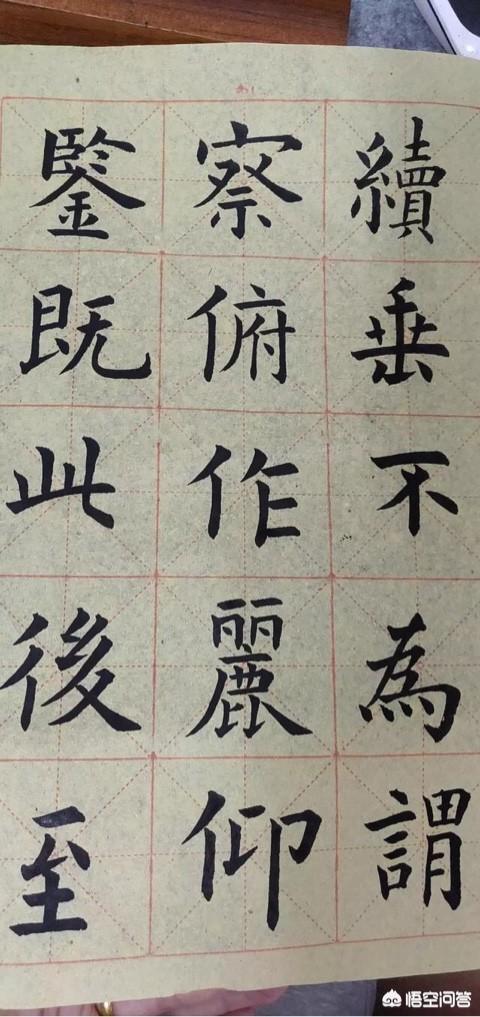 續垂不為謂
察俯作麗仰
鑒既此後至
悟空问答